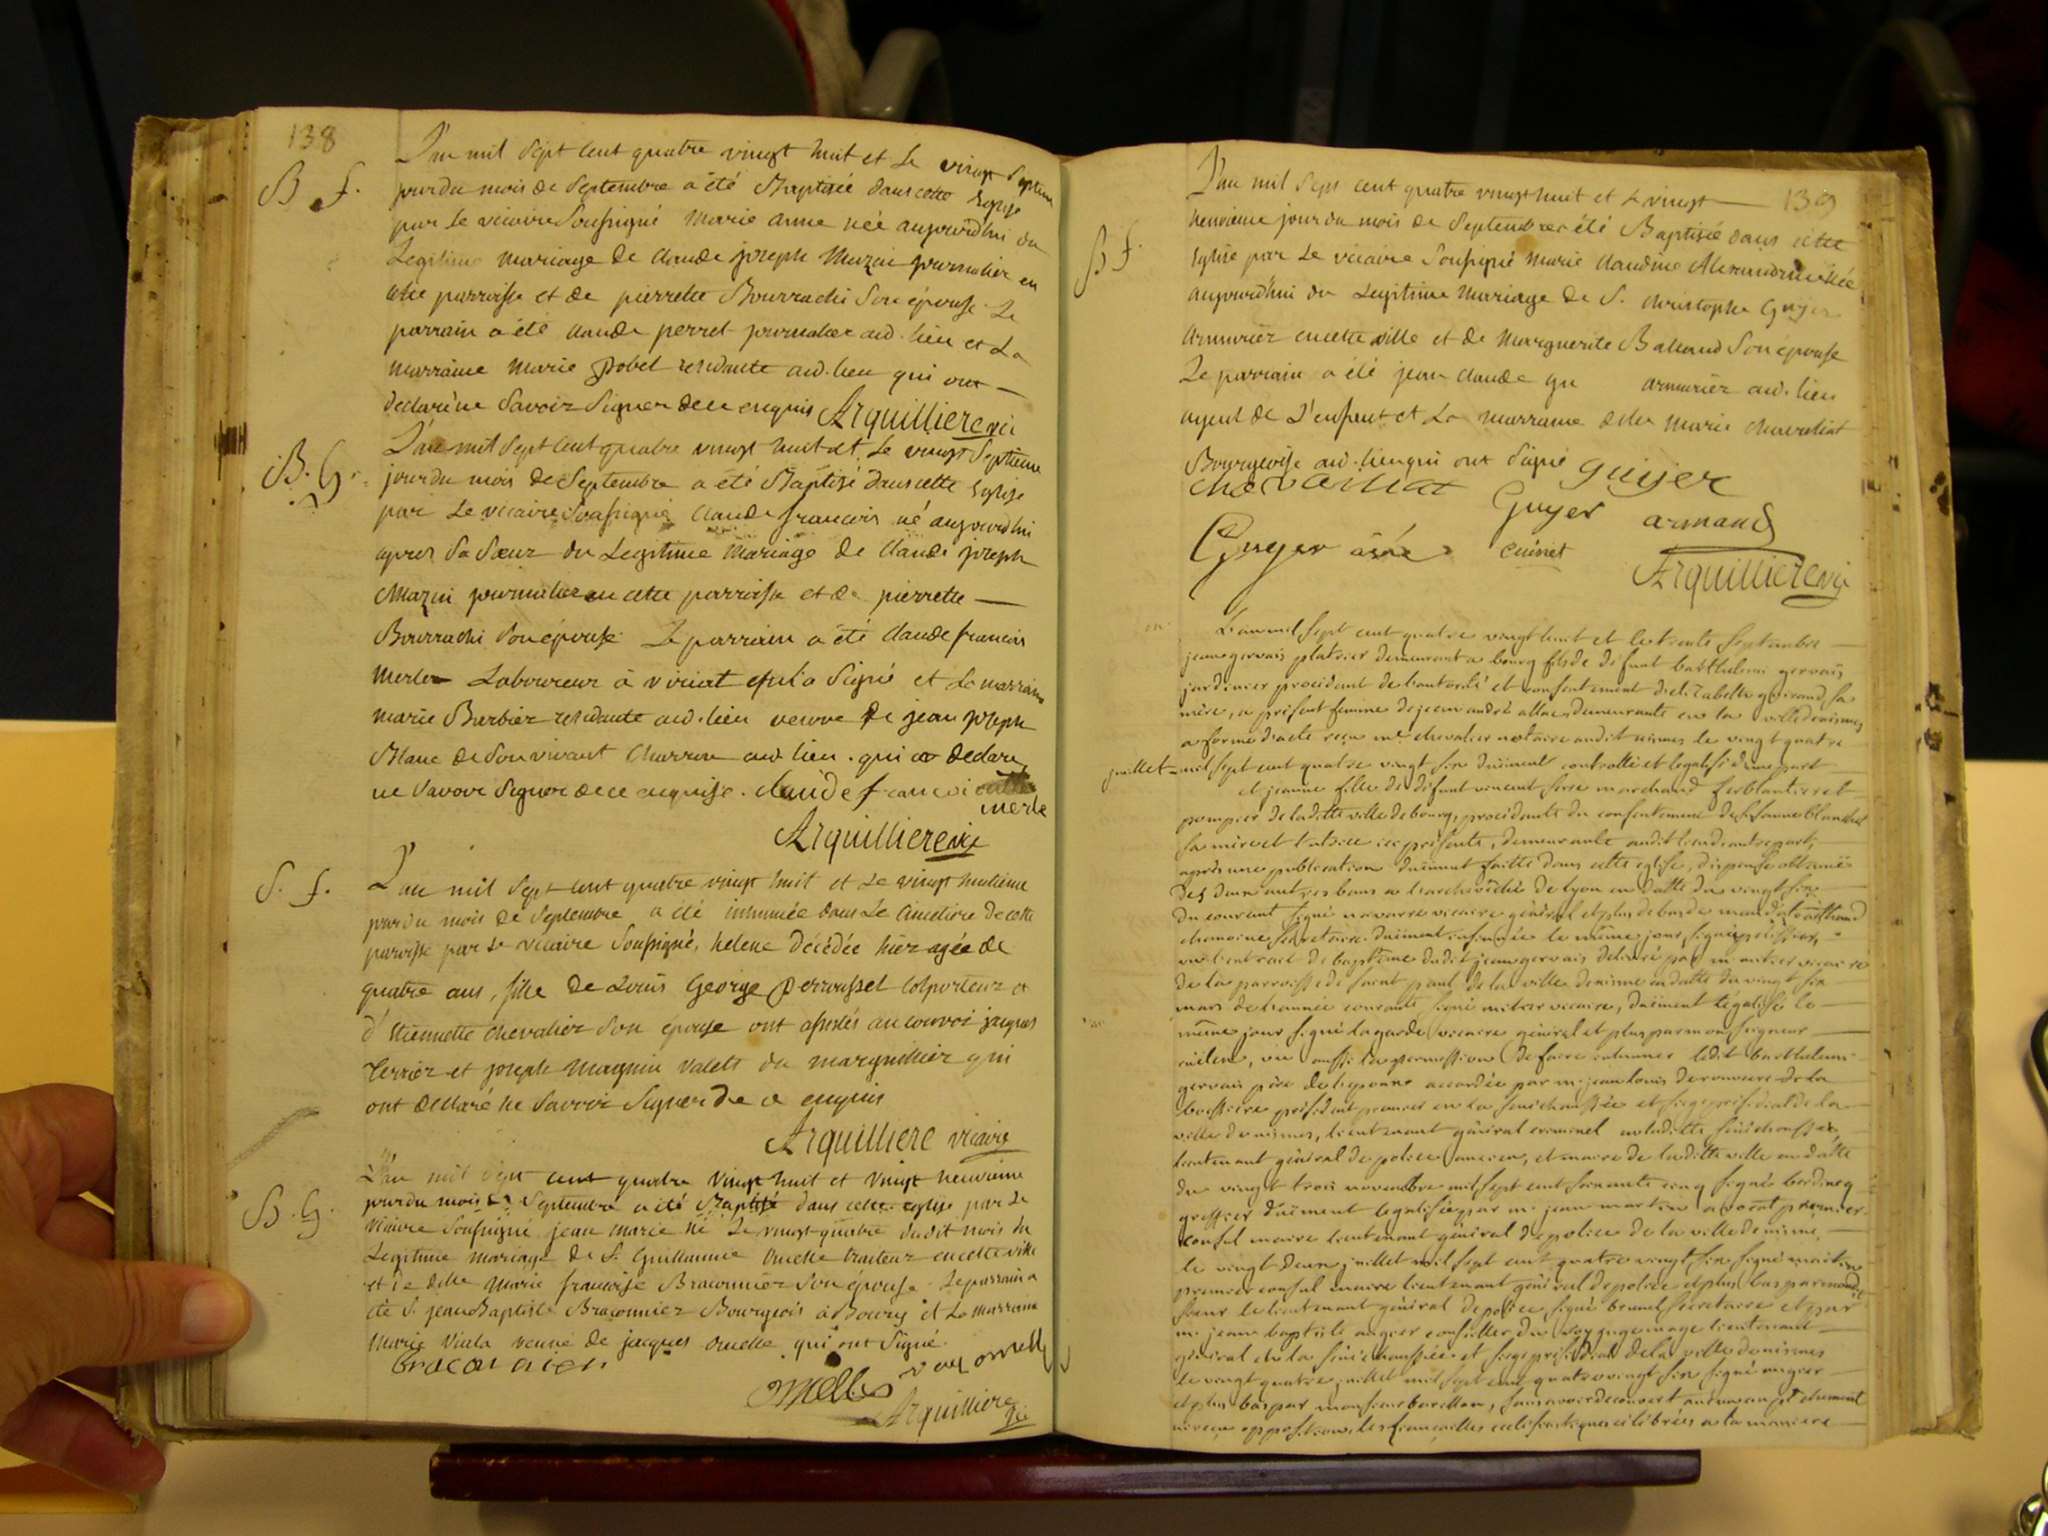 138
B f.
L'an mil sept cent quatre vingt huit et le vingt septieme
jour du mois de Septembre a été Baptisée dans cette Eglise
par le vicaire Soussigné Marie anne née aujourd'hui du
Legitime mariage de claude joseph Mazui journalier en
cette parroisse et de pierrette Bourrachi Son épouse. Le
parrain a été claude perret journalier aud. lieu et La
marraine marie Gobet residante aud. lieu qui ont
declaré ne Savoir Signer de ce enquis Arquilliere vic
B. G.
L'an mil sept cent quatre vingt huit et Le vingt Septieme
jour du mois de Septembre a été Baptisé dans cette Eglise
par Le vicaire Soussigné claude francois né aujourd'hui
apres Sa Sœur du Legitime Mariage de claude joseph
Mazui journalier en cette parroisse et de pierrette
Bourrachi Son épouse. Le parrain a été claude francois
Merle Laboureur à viriat qui a Signé et La marraine
marie Barbier residante aud. lieu veuve de jean joseph
Blanc de Son vivant charron aud. lieu. qui a declaré
ne Savoir Signer de ce enquise. claude francoi
merle
Arquilliere vic
S. f.
L'an mil sept cent quatre vingt huit et Le vingt huitieme
jour du mois de Septembre a été inhumée dans Le Cimetiere de cette
paroisse par Le vicaire Soussigné, helene décédée hier agée de
quatre ans, fille de Louis George perrousset Colporteur et
d'Etiennette chevalier Son épouse ont assistés au convoi jacques
Terrier et joseph Magnin valets du marguillier qui
ont declaré ne Savoir Signer de ce enquis
Arquilliere vicaire
B. G.
L'an mil sept cent quatre vingt huit et vingt neuvieme
jour du mois de Septembre a été Baptisé dans cette eglise par Le
vicaire Soussigné jean marie né Le vingt quatre dudit mois du
Legitime mariage de S. Guillaume Ouelle traiteur en cette ville
et de delle marie françoise Braconnier Son épouse. Le parrain a
été S. jean Baptiste Braconnier Bourgeois à Bourg et La marraine
Marie Viala veuve de jacques ouelle qui ont Signé.
braconnier
Arquilliere
vic
139
B f.
L'an mil Sept cent quatre vingt huit et Le vingt
neuvieme jour du mois de Septembre a été Baptisée dans cette
Eglise par Le vicaire Soussigné Marie claudine Alexandrine née
aujourd'hui du Legitime Mariage de S. christophe Guyer
Armurier en cette ville et de Marguerite Balland Son épouse
Le parrain a été jean claude gu armurier aud. lieu
ayeul de L'enfant et La marraine delle marie chavaliat
Bourgeoise aud. lieu qui ont Signé guijer
chavaliat Guyer armand
Guyer ainé cuisnet
Arquilliere vic
L'an mil sept cent quatre vingt huit et le trente septembre
jean gervais platrier demeurant a bourg fils de défunt barthelemi gervais
jardinier procedant de l'autorité et consentement d'elizabeth guirand sa
mere, a présent femme de jean andré allae, demeurante en la ville de nismes
a forme d'acte reçu me chevalier notaire audit nismes le vingt quatre
juillet mil sept cent quatre vingt six duëment controllé et legalisé d'une part
et jeanne fille de défunt vincent marchand ferblantier et
pompier de la ditte ville de bourg, procedante du consentement de blanchet
sa mere et tutrice ici présente, demeurante audit lieu d'autre part;
après une publication duëment faitte dans cette eglise, dispense obtenüe
des deux autres bans a l'archevêché de lyon en datte du vingt six
du courant signé navarre vicaire général et plus bas de mandato
chanoine secretaire duëment insinuée le même jour, signé
vu l'extrait de baptême dudit jean gervais délivré par m vicaire
de la parroisse de saint paul de la ville de nisme en datte du vingt six
mars de l'année courante signé vicaire, duëment légalisé le
même jour signé lagarde vicaire général et plus par monseigneur
vu aussi la permission de faire inhumer ledit barthelemi
gervais père de l'epoux accordée par m. jean louis de la
boissiere président premier en la sénéchaussée et siege présidial de la
ville de nismes, lieutenant général criminel en ladite sénéchaussée,
lieutenant général de police ancien, et maire de la ditte ville en datte
du vingt trois novembre mil sept cent soixante cinq signé
greffier duëment legalisée par m. jean martin avocat premier
consul maire lieutenant général de police de la ville de nisme
le vingt deux juillet mil sept cent quatre vingt six signé martin
premier consul maire lieutenant général de police et plus bas par mondit
sieur le lieutenant général de police, signé brunel secretaire et par
m. jean baptiste augier conseiller du roy juge mage lieutenant
général en la sénéchaussée et siege présidial de la ville de nismes
le vingt quatre juillet mil sept cent quatre vingt six signé augier
et plus bas par monsieur barillon, sans avoir decouvert aucun empêchement
ni reçu opposition, les fiançailles ecclesiastiques célébrées a la maniere